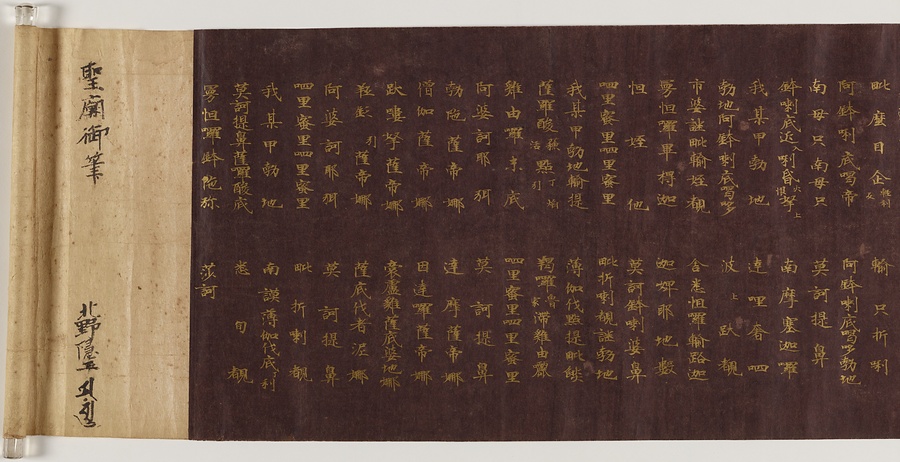 毗麼目企 輸只折喇
阿鉢喇底喝帝 阿鉢喇底喝哆勃地
南母只南母只 莫訶提鼻
鉢喇底近入喇昬 上 南摩塞迦囉
我某甲勃地 達哩奢呬
勃地阿鉢喇底喝哆 波上跋覩
市婆謎毗輸姪覩 舍悉怛囉輸路迦
曼怛囉畢得迦 迦婢耶地數
怛姪他 莫訶鉢喇婆鼻
呬里蜜里呬里蜜里 毗折喇覩謎勃地
我某甲勃地輸提 薄伽伐點提毗
薩羅酸點丁焰引 羯囉魯滯雞由囉
雞由囉末底 呬里蜜里呬里蜜里
阿婆訶耶弭 莫訶提鼻
勃陀薩帝娜 達摩薩帝娜
僧伽薩帝娜 因達囉薩帝娜
跋嘍拏薩帝娜 裒盧雞薩底婆地娜
引薩帝娜 薩底伐者泥娜
阿婆訶耶弭 莫訶提鼻
呬里蜜里呬里蜜里 毗折喇覩
我某甲勃地 南謨薄伽伐底利
莫訶提鼻薩囉酸底 悉甸覩
曼怛囉鉢陀彌 莎訶
聖廟御筆
北野隱